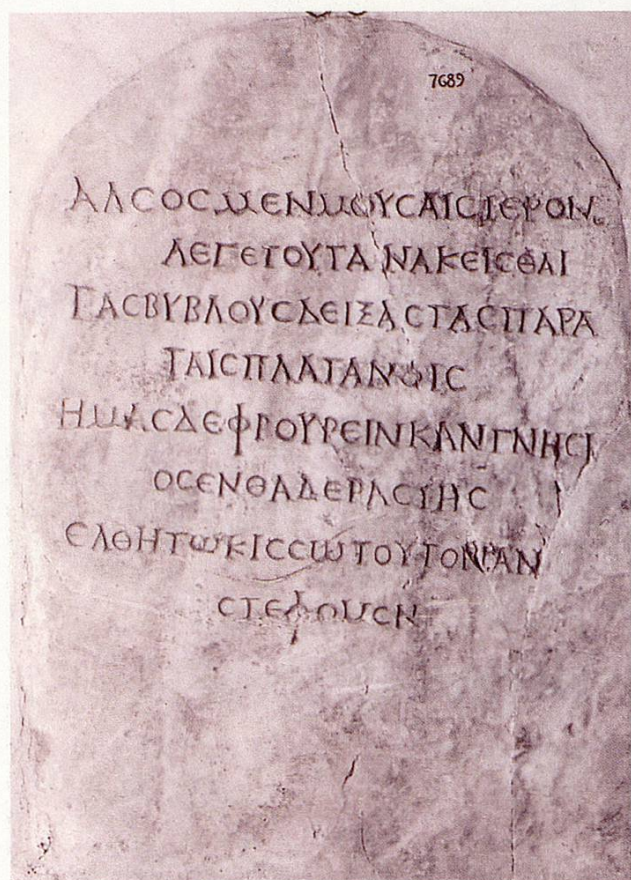 7689
ΑΛCΟCΜΕΝΜΟΥCΑΙCΙΕΡΟΝ
ΛΕΓΕΤΟΥΤΑΝΑΚΕΙCΘΑΙ
ΤΑCΒΥΒΛΟΥCΔΕΙΞΑCΤΑCΠΑΡΑ
ΤΑΙCΠΛΑΤΑΝΟΙC
ΗΜΑCΔΕΦΡΟΥΡΕΙΝΚΑΝΓΝΗCΙ
ΟCΕΝΘΑΔΕΡΑCΤΗC
ΕΛΘΗΤωΚΙCCωΤΟΥΤΟΝΑΝ
CΤΕΦΟΜΕΝ